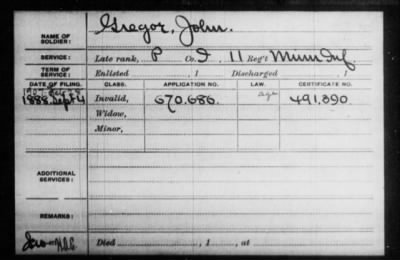 NAME OF SOLDIER: Gregor, John.
SERVICE: Late rank, P Co. I, 11 Reg't Minn Inf
TERM OF SERVICE: Enlisted , 1 Discharged , 1
DATE OF FILING. CLASS. APPLICATION NO. LAW. CERTIFICATE NO.
1888, Sept 4 Invalid, 670.686. 491.390.
Widow,
Minor,
ADDITIONAL SERVICES:
REMARKS:
Died , 1 , at